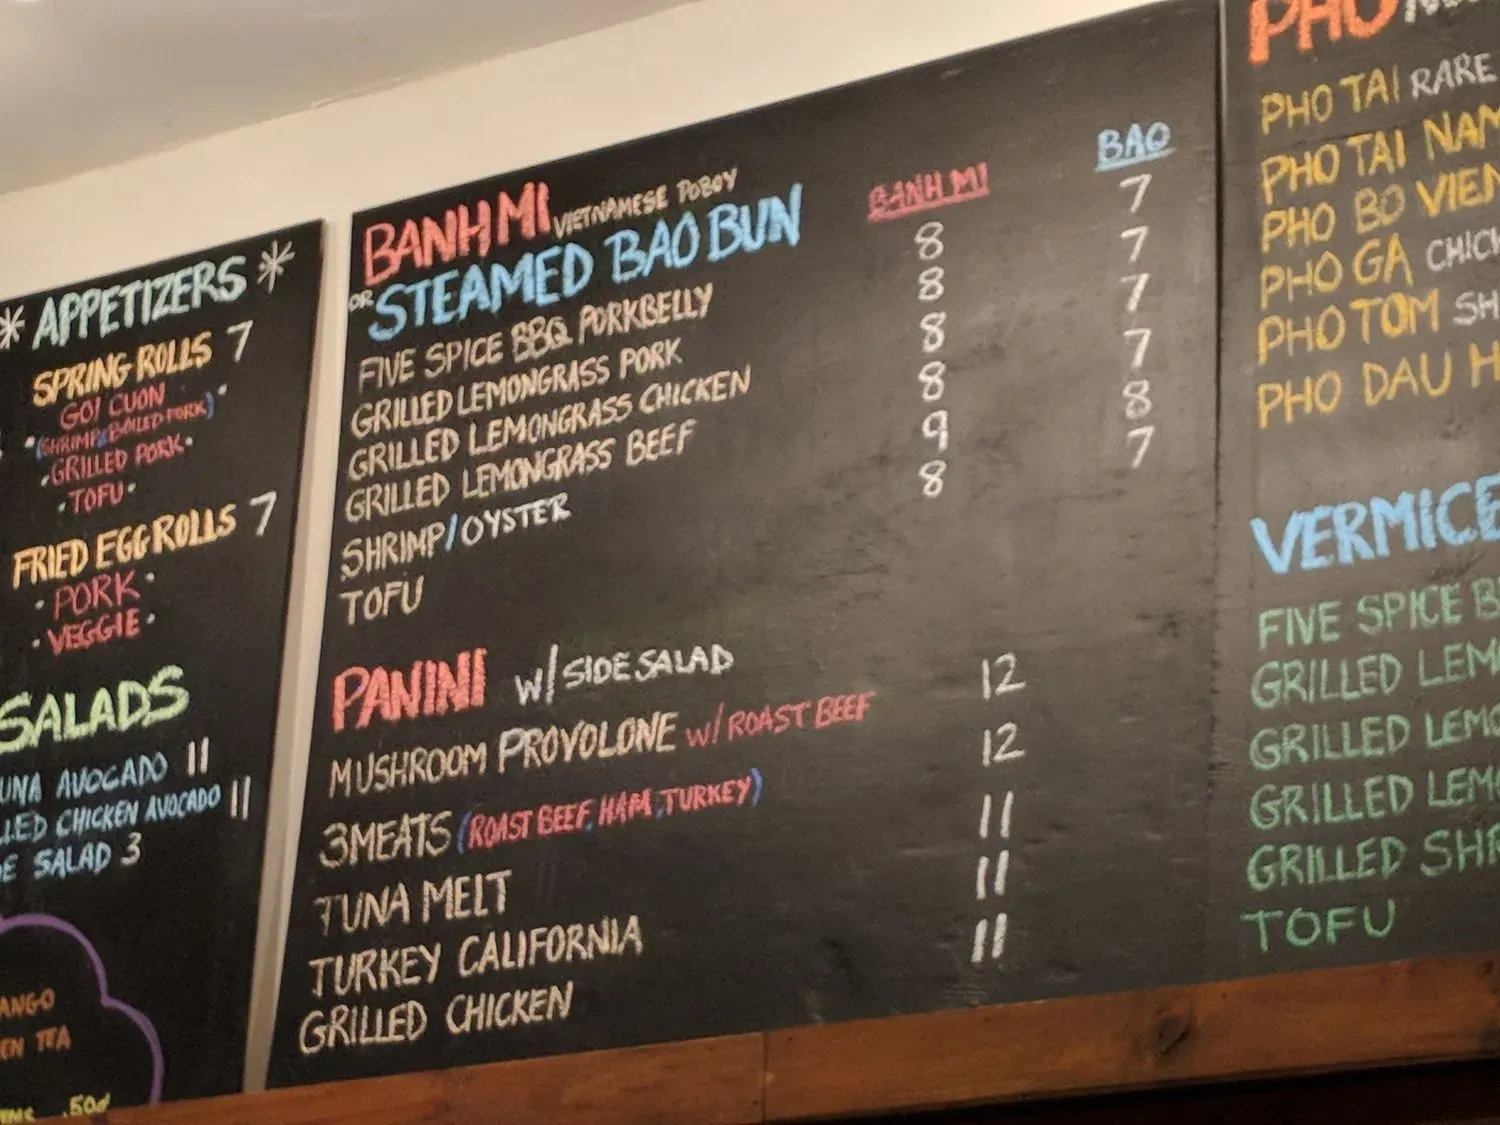 * APPETIZERS *
SPRING ROLLS 7
GOI CUON
(SHRIMP & BOILED PORK)
GRILLED PORK
TOFU
FRIED EGGROLLS 7
PORK
VEGGIE
SALADS
UNA AVOCADO 11
LLED CHICKEN AVOCADO 11
DE SALAD 3
ANGO
EN TEA
.50¢
BANH MI VIETNAMESE POBOY
OR STEAMED BAO BUN
BANH MI BAO
FIVE SPICE BBQ PORKBELLY 8 7
GRILLED LEMONGRASS PORK 8 7
GRILLED LEMONGRASS CHICKEN 8 7
GRILLED LEMONGRASS BEEF 8 7
SHRIMP/OYSTER 9 8
TOFU 8 7
PANINI W/SIDE SALAD
MUSHROOM PROVOLONE W/ROAST BEEF 12
3 MEATS (ROAST BEEF, HAM, TURKEY) 12
TUNA MELT 11
TURKEY CALIFORNIA 11
GRILLED CHICKEN 11
PHO
PHO TAI RARE
PHO TAI NAM
PHO BO VIEN
PHO GA CHICK
PHO TOM SH
PHO DAU H
VERMICE
FIVE SPICE B
GRILLED LEM
GRILLED LEMO
GRILLED LEM
GRILLED SHR
TOFU